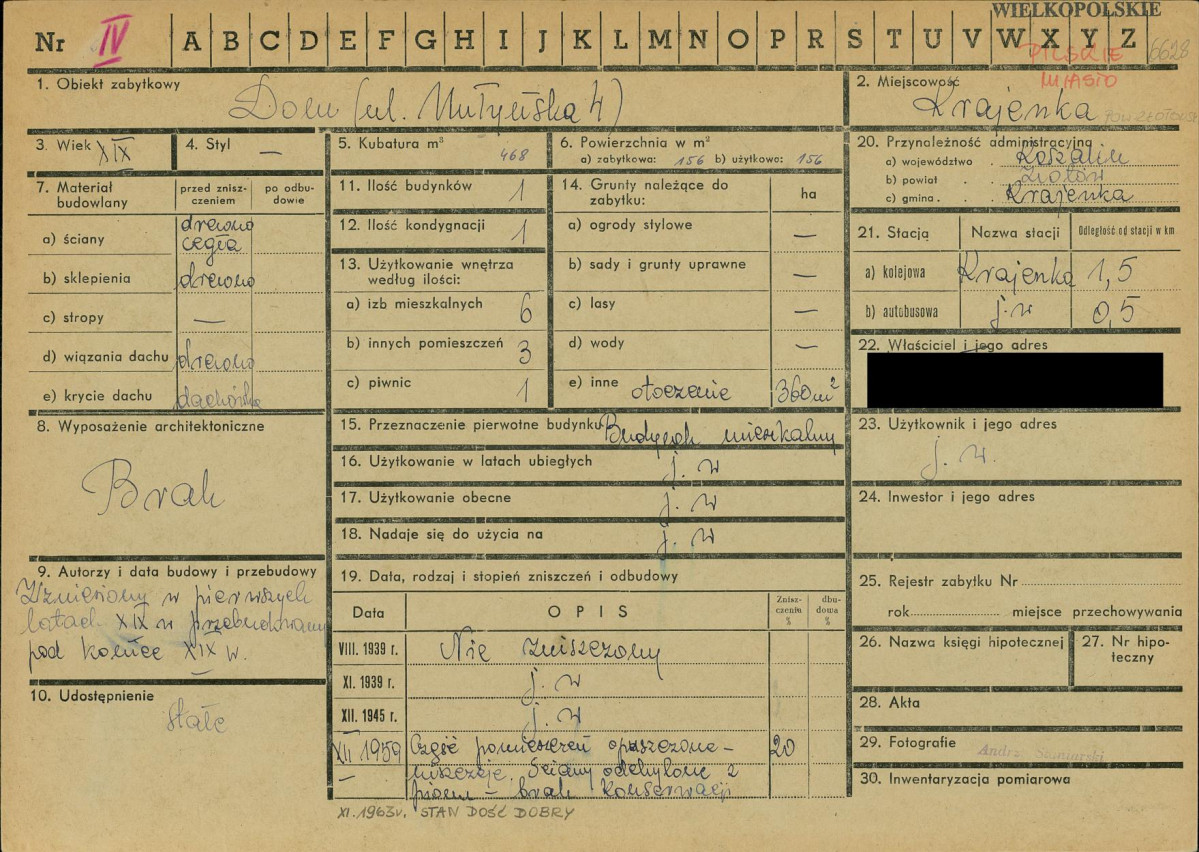 WIELKOPOLSKIE
Nr IV A B C D E F G H I J K L M N O P R S T U V W X Y Z
PILSKIE 6628
MIASTO
1. Obiekt zabytkowy
Dom (ul. Młyńska 4)
2. Miejscowość
Krajenka
POW. ZŁOTOWSKI
3. Wiek XIX
4. Styl —
5. Kubatura m³ 468
6. Powierzchnia w m²
a) zabytkowa: 156 b) użytkowa: 156
7. Materiał budowlany
przed zniszczeniem
po odbudowie
a) ściany drewno cegła
b) sklepienia drewno
c) stropy —
d) wiązania dachu drewno
e) krycie dachu dachówka
8. Wyposażenie architektoniczne
Brak
9. Autorzy i data budowy i przebudowy
Wzniesiony w pierwszych
latach XIX w przebudowany
pod koniec XIX w.
10. Udostępnienie
stałe
11. Ilość budynków 1
12. Ilość kondygnacji 1
13. Użytkowanie wnętrza
według ilości:
a) izb mieszkalnych 6
b) innych pomieszczeń 3
c) piwnic 1
14. Grunty należące do
zabytku: ha
a) ogrody stylowe —
b) sady i grunty uprawne —
c) lasy —
d) wody —
e) inne otoczenie 360 m²
15. Przeznaczenie pierwotne budynku Budynek mieszkalny
16. Użytkowanie w latach ubiegłych j. w
17. Użytkowanie obecne j. w
18. Nadaje się do użycia na j. w
19. Data, rodzaj i stopień zniszczeń i odbudowy
Data OPIS Zniszczenia % dbudowa %
VIII. 1939 r. Nie zniszczony
XI. 1939 r. j. w
XII. 1945 r. j. w
XII 1959 Część pomieszczeń opuszczona – 20
niszczeje. Ściany odchylone z
pionu – brak konserwacji
XI. 1963 r. STAN DOŚĆ DOBRY
20. Przynależność administracyjna
a) województwo Koszalin
b) powiat Złotów
c) gmina Krajenka
21. Stacja Nazwa stacji Odległość od stacji w km
a) kolejowa Krajenka 1,5
b) autobusowa j. w 0,5
22. Właściciel i jego adres
23. Użytkownik i jego adres
j. w.
24. Inwestor i jego adres
25. Rejestr zabytku Nr
rok miejsce przechowywania
26. Nazwa księgi hipotecznej
27. Nr hipoteczny
28. Akta
29. Fotografie
30. Inwentaryzacja pomiarowa